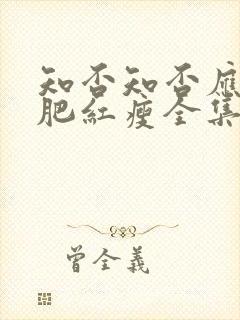 知否知否應
肥紅瘦全集
曾全義